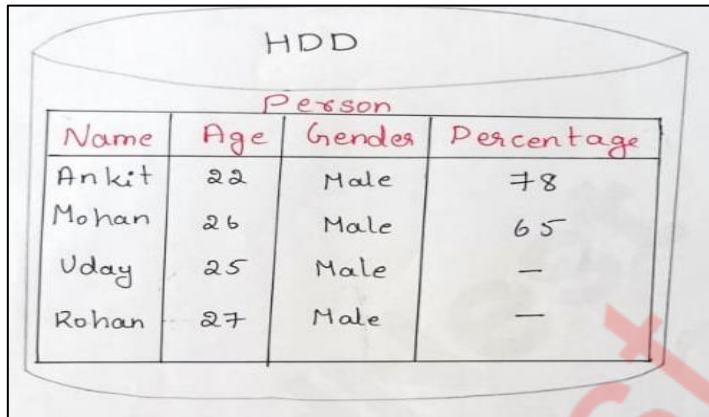 HDD
Person
Name Age Gender Percentage
Ankit 22 Male 78
Mohan 26 Male 65
Uday 25 Male —
Rohan 27 Male —